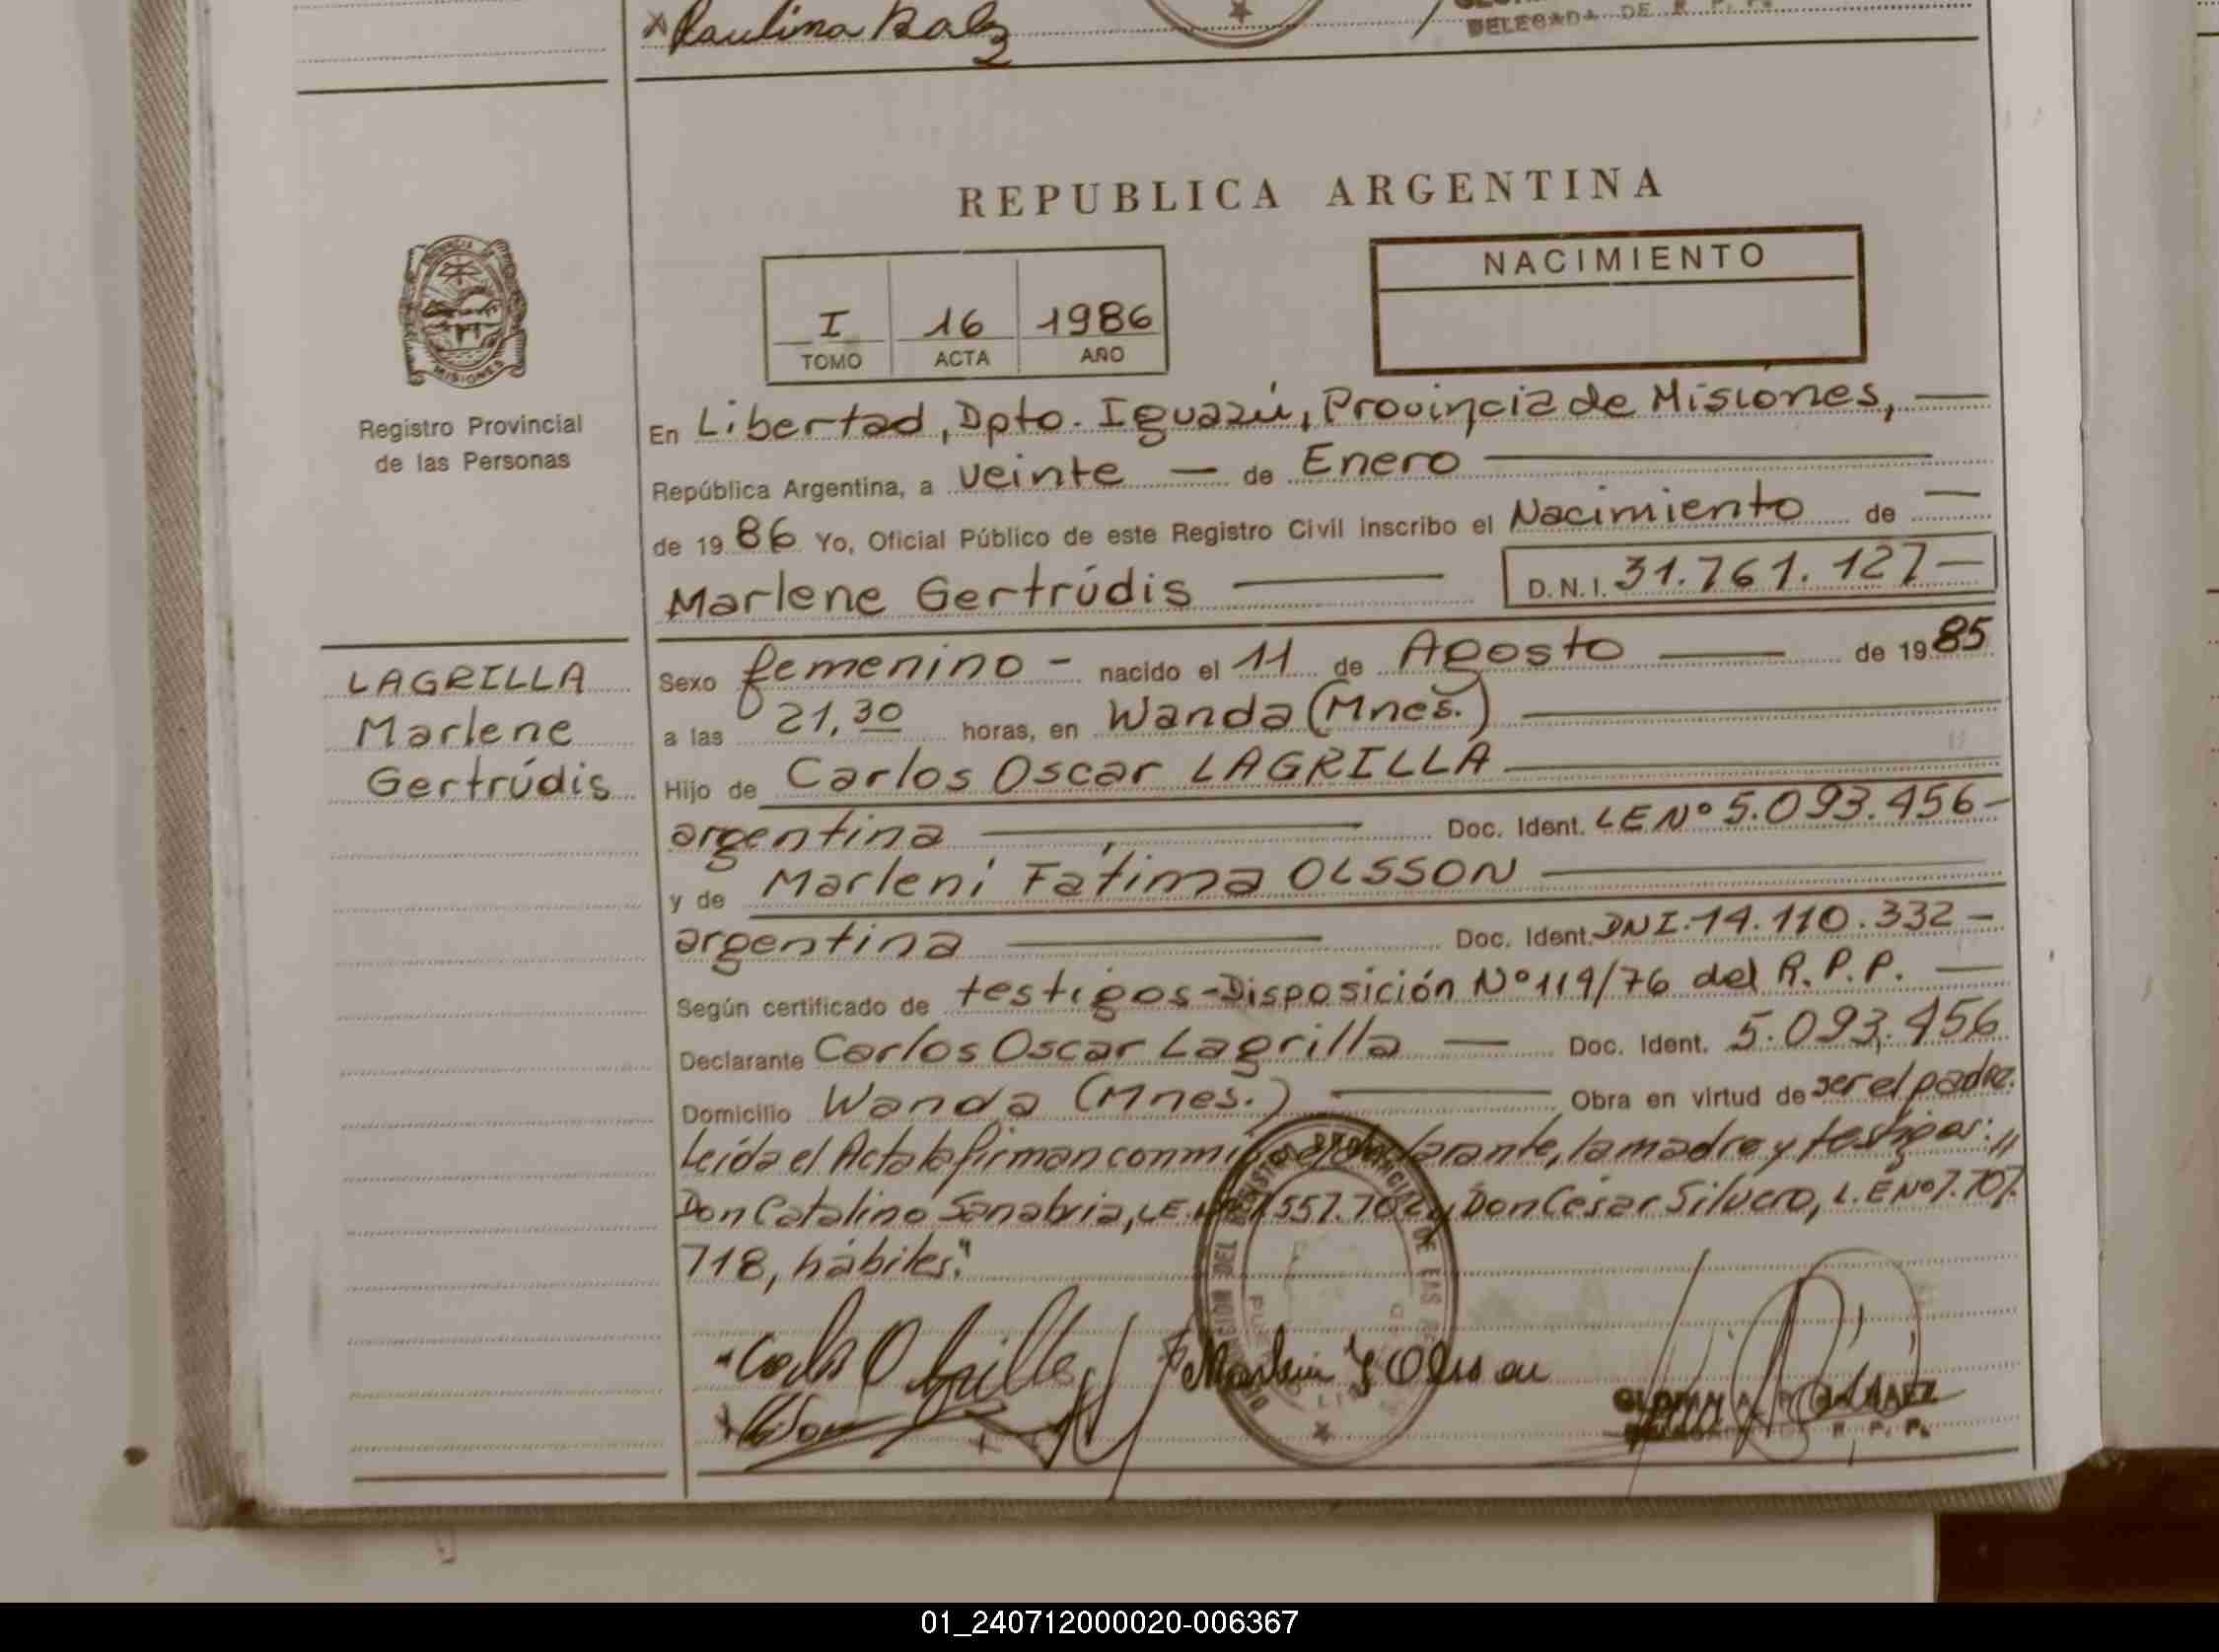 Paulina Balz
DELEGADA DE R. P. P.
REPUBLICA ARGENTINA
NACIMIENTO
I 16 1986
TOMO ACTA AÑO
PROVINCIA
MISIONES
Registro Provincial
de las Personas
En Libertad, Dpto. Iguazú, Provincia de Misiones,
República Argentina, a veinte — de Enero
de 1986 Yo, Oficial Público de este Registro Civil inscribo el Nacimiento de
Marlene Gertrúdis D.N.I. 31.761.127
LAGRILLA
Marlene
Gertrúdis
Sexo femenino - nacido el 11 de Agosto de 1985
a las 21,30 horas, en Wanda (Mnes.)
Hijo de Carlos Oscar LAGRILLA
argentina Doc. Ident. LE Nº 5.093.456-
y de Marleni Fátima OLSSON
argentina Doc. Ident. DNI. 14.110.332-
Según certificado de testigos-Disposición Nº 119/76 del R.P.P.
Declarante Carlos Oscar Lagrilla — Doc. Ident. 5.093.456
Domicilio Wanda (Mnes.) Obra en virtud de ser el padre.
Leída el Acta la firman conmigo el declarante, la madre y testigos://
Don Catalino Sanabria, LE. 557.702 y Don César Silvero, L.E Nº 7.707.
718, hábiles."
Marleni F Olsson
R. P. P.
01_240712000020-006367